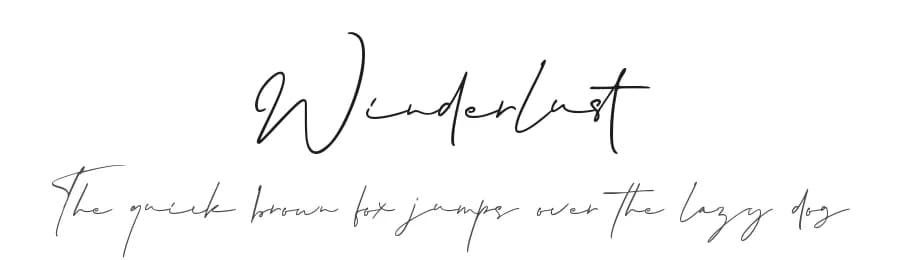 Winderlust
The quick brown fox jumps over the lazy dog